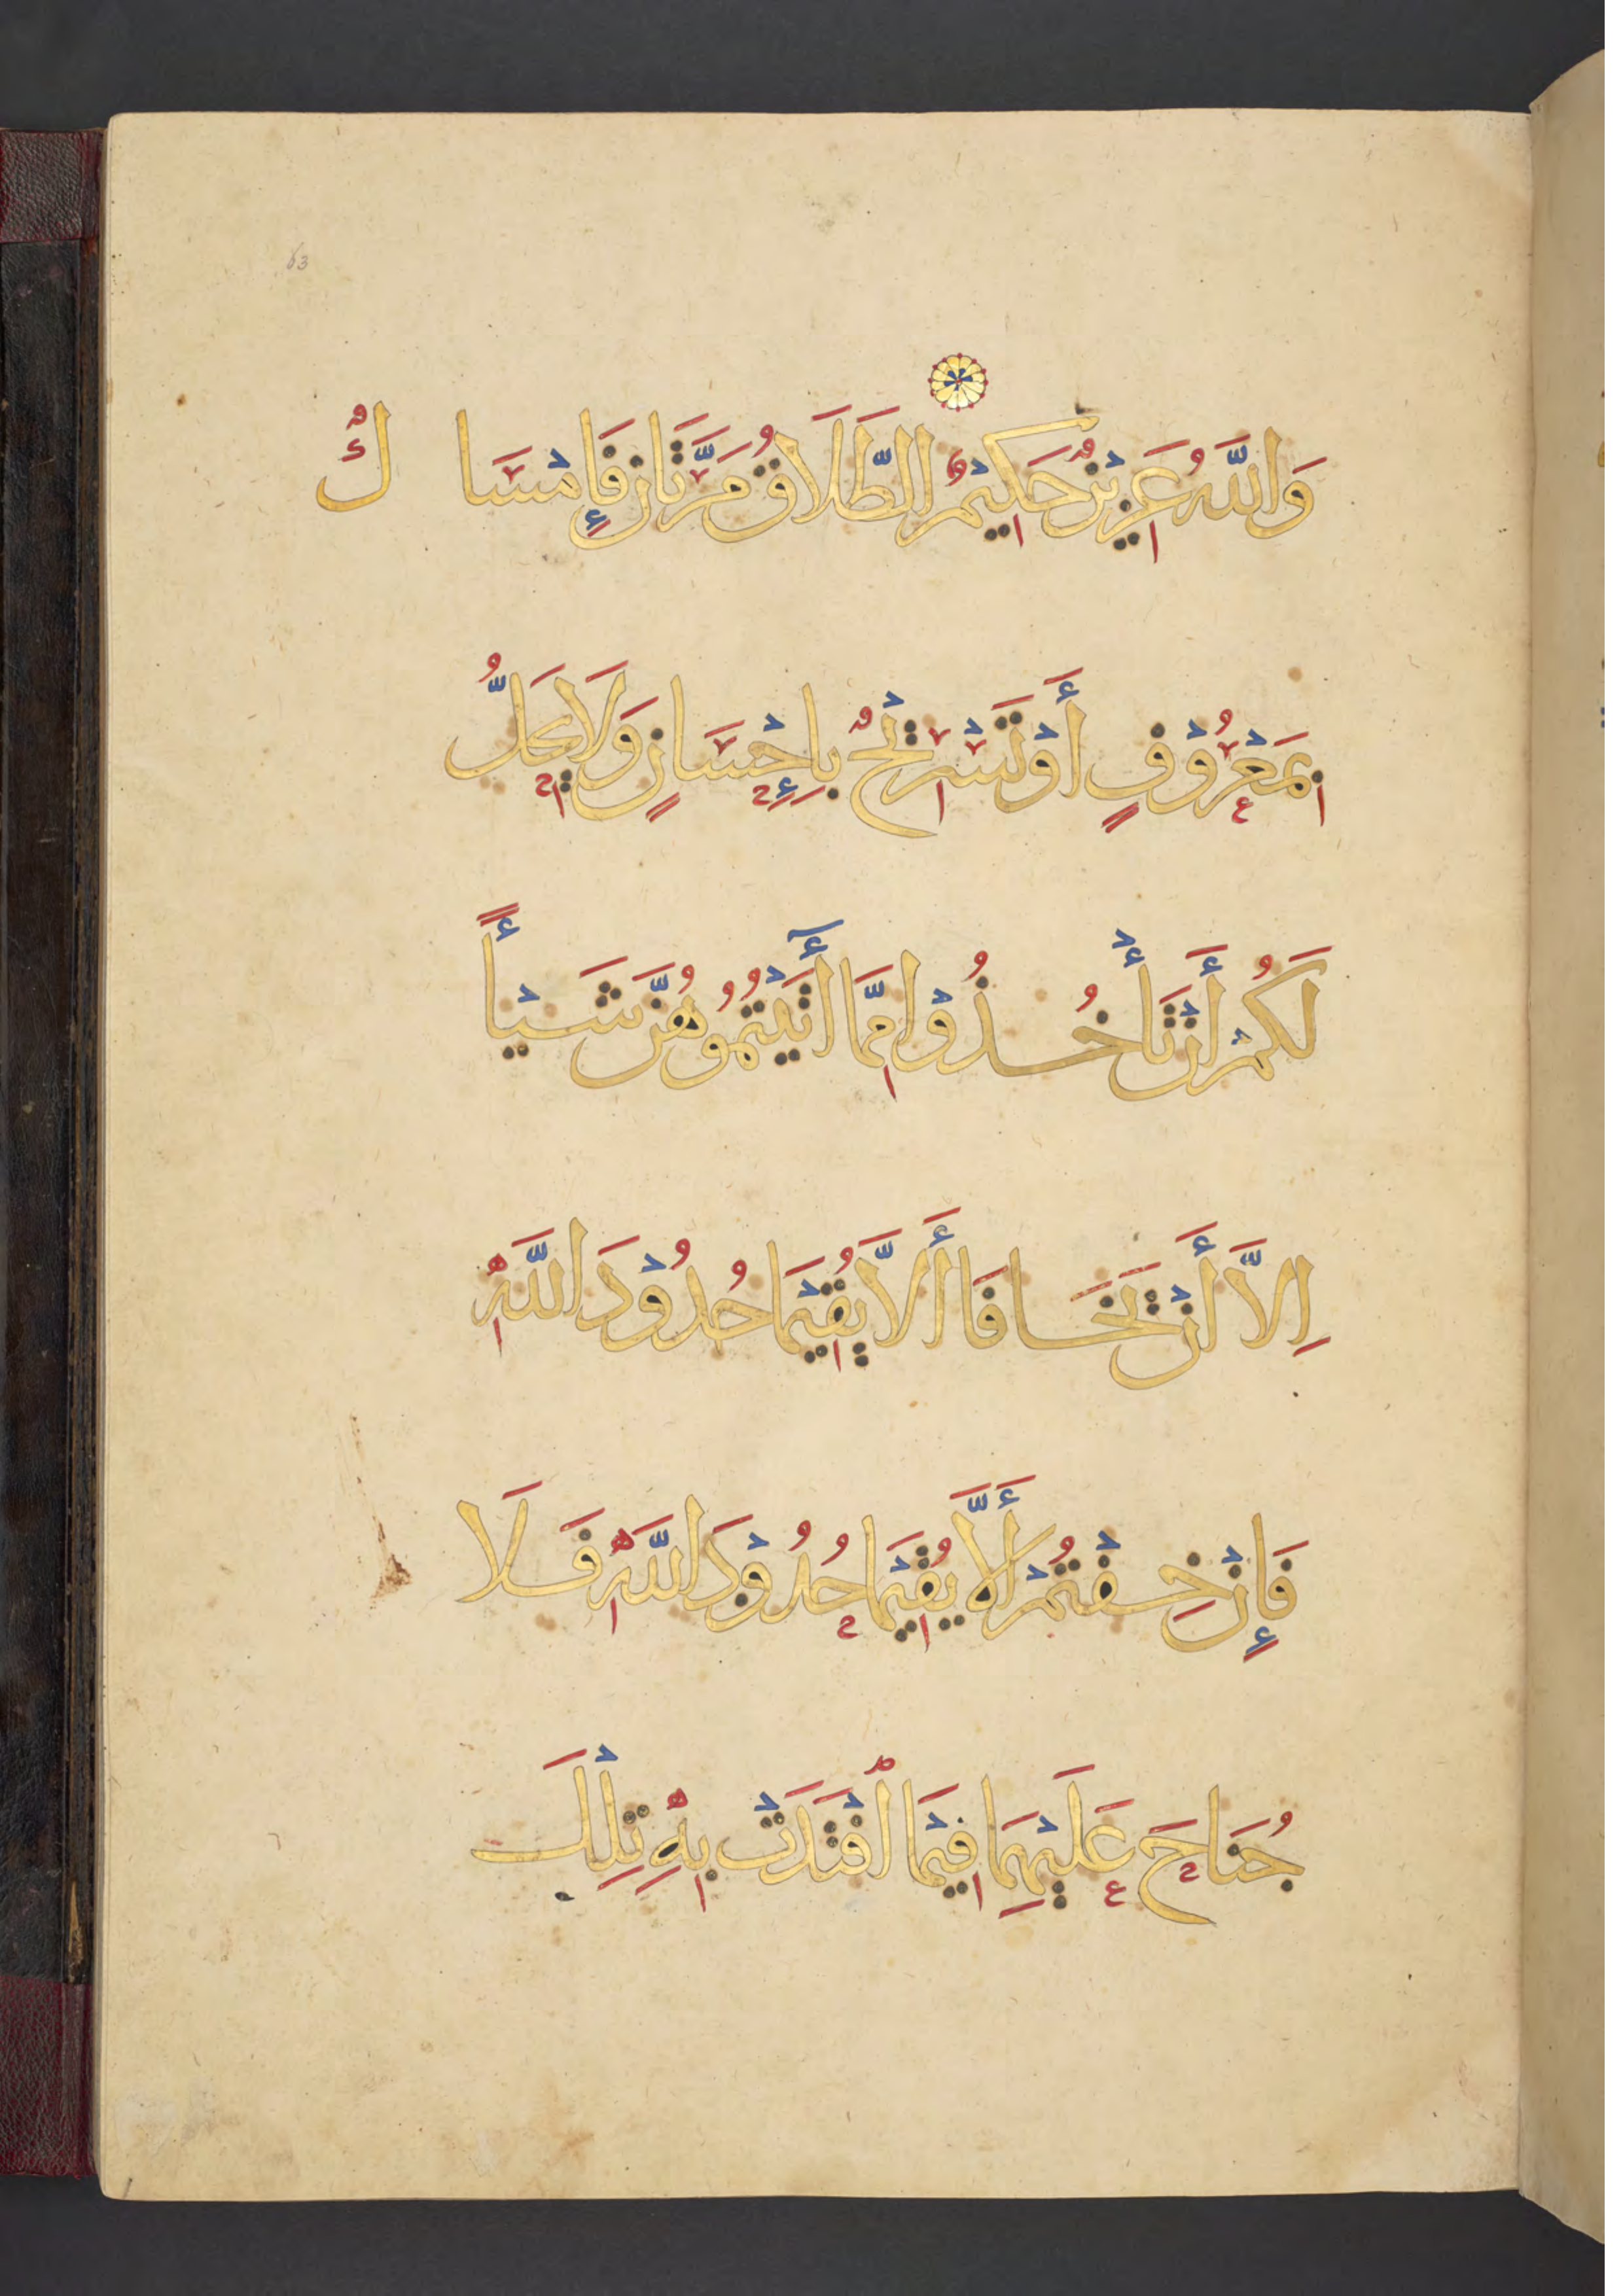 63
وَاللَّهُ عَزِيْزٌ حَكِيْمٌ الطَّلَاقُ مَرَّتَانِ فَإِمْسَاكٌ
بِمَعْرُوْفٍ أَوْ تَسْرِيْحٌ بِإِحْسَانٍ وَلَا يَحِلُّ
لَكُمْ أَنْ تَأْخُذُوْا مِمَّا أٓتَيْتُمُوْهُنَّ شَيْـأً
اِلَّا أَنْ يَخَافَا أَلَّا يُقِيْمَا حُدُوْدَ اللَّهِ
فَإِنْ خِفْتُمْ أَلَّا يُقِيْمَا حُدُوْدَ اللَّهِ فَلَا
جُنَاحَ عَلَيْهِمَا فِيْمَا افْتَدَتْ بِهِ تِلْكَ